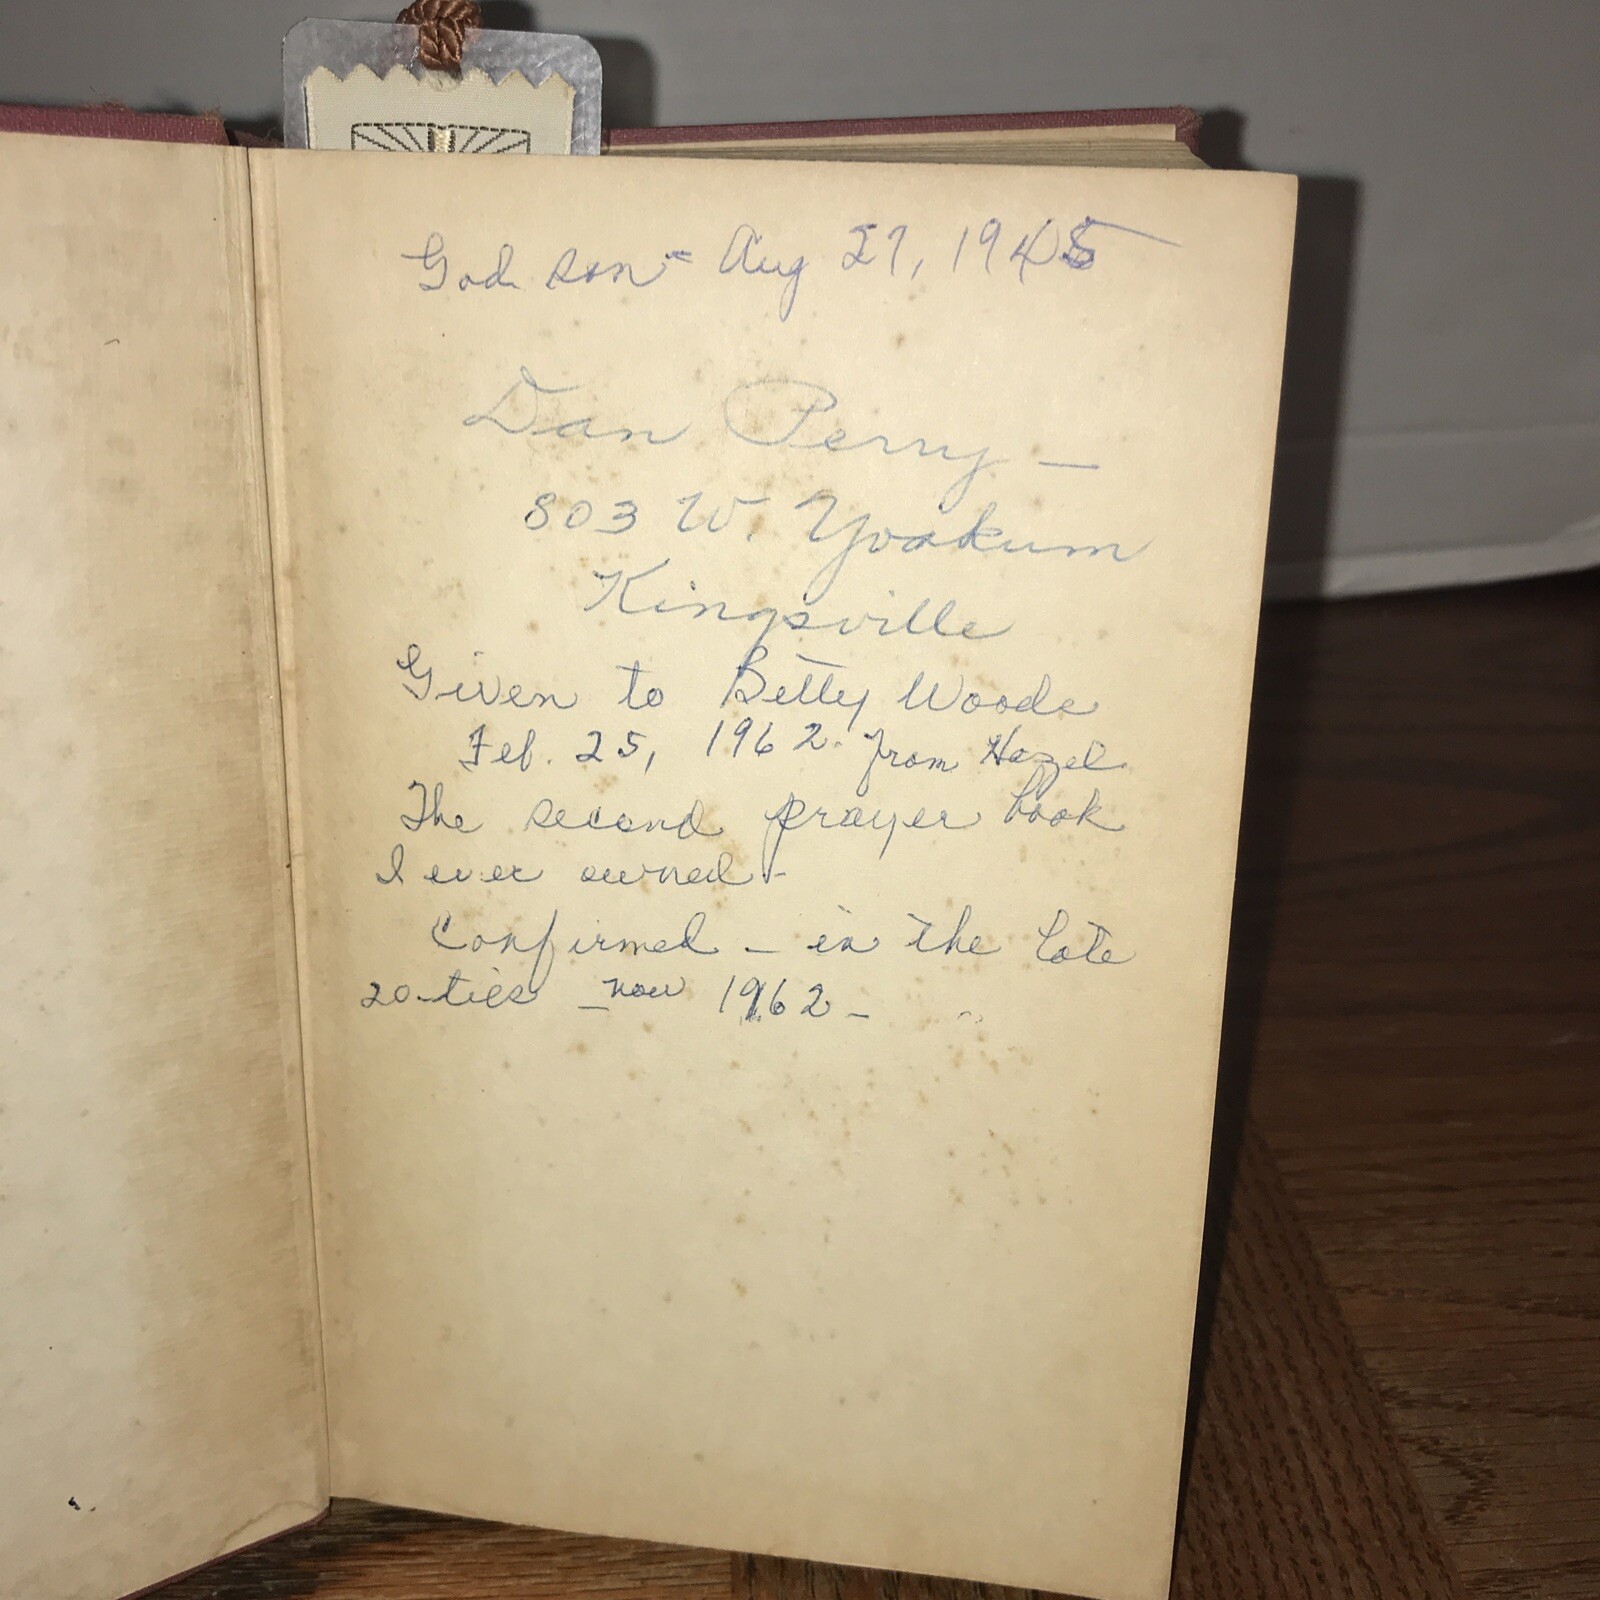 God son - Aug 27, 1945
Dan Perry -
803 W. Yoakum
Kingsville
Given to Betty Woods
Feb. 25, 1962. from Hazel
The second prayer book
I ever owned -
Confirmed - in the late
20-ties - now 1962 -